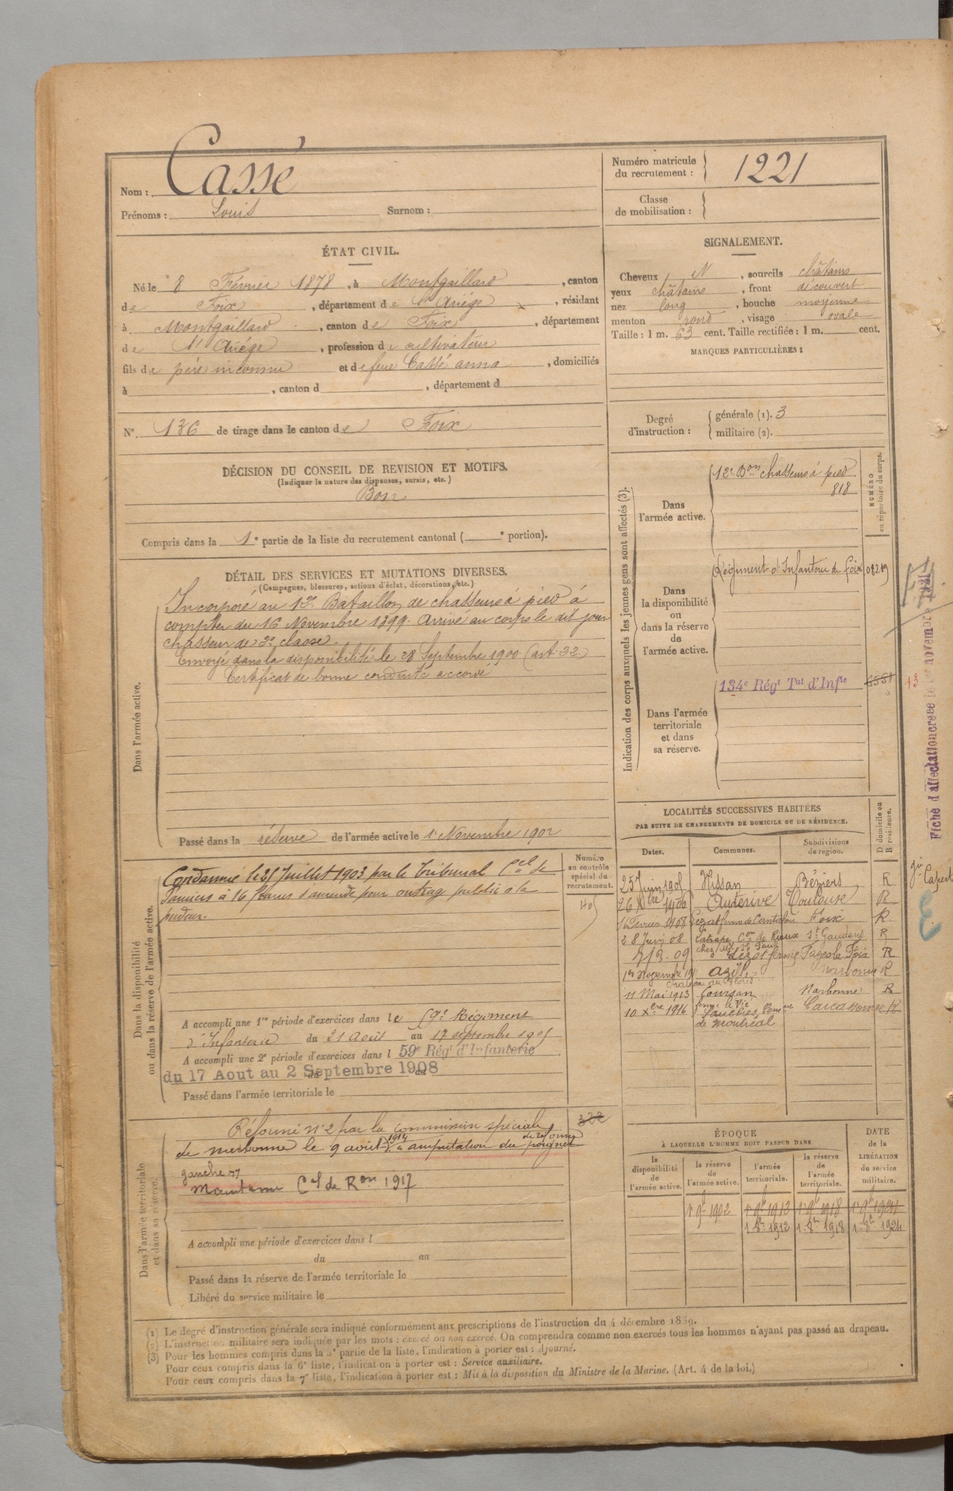 Nom : Cassé
Prénoms : Louis Surnom :
Numéro matricule du recrutement : 1221
Classe de mobilisation :
ÉTAT CIVIL.
Né le 8 Février 1878, à Montgaillard, canton
de Foix, département de l'Ariége, résidant
à Montgaillard, canton de Foix, département
de l'Ariége, profession de cultivateur
fils de père inconnu et de feue Cassé anna, domiciliés
à , canton d , département d
N° 136 de tirage dans le canton de Foix
SIGNALEMENT.
Cheveux N, sourcils châtains
yeux châtains, front découvert
nez long, bouche moyenne
menton rond, visage ovale
Taille : 1 m. 63 cent. Taille rectifiée : 1 m. cent.
MARQUES PARTICULIÈRES :
Degré d'instruction : générale (1). 3
militaire (2).
DÉCISION DU CONSEIL DE REVISION ET MOTIFS.
(Indiquer la nature des dispenses, sursis, etc.)
Bon
Compris dans la 1e partie de la liste du recrutement cantonal ( e portion).
DÉTAIL DES SERVICES ET MUTATIONS DIVERSES.
(Campagnes, blessures, actions d'éclat, décorations, etc.)
Dans l'armée active.
Incorporé au 12e Bataillon de chasseurs à pied à
compter du 16 Novembre 1899. Arrivé au corps le dit jour
chasseur de 2e classe.
Envoyé dans la disponibilité le 28 Septembre 1900 (art 32)
Certificat de bonne conduite accordé
Passé dans la réserve de l'armée active le 1 Novembre 1902
Indication des corps auxquels les jeunes gens sont affectés (3).
NUMÉRO au répertoire du corps.
Dans l'armée active.
12e Bon chasseurs à pied
818
Dans la disponibilité ou dans la réserve de l'armée active.
Régiment d'Infanterie de Foix
Dans l'armée territoriale et dans sa réserve.
134e Régt Tal d'Infie
Fiche d'affectation
Dans la disponibilité ou dans la réserve de l'armée active.
Numéro au contrôle spécial du recrutement.
Condamné le 25 Juillet 1903 par le Tribunal Cel de
Pamiers à 16 francs d'amende pour outrage public à la
pudeur.
A accompli une 1re période d'exercices dans le 59e Régiment
d'Infanterie du 21 Août au 17 septembre 1905
A accompli une 2e période d'exercices dans l 59e Régt d'Infanterie
du 17 Aout au 2 Septembre 1908
Passé dans l'armée territoriale le
LOCALITÉS SUCCESSIVES HABITÉES
PAR SUITE DE CHANGEMENTS DE DOMICILE OU DE RÉSIDENCE.
Dates. Communes. Subdivisions de région. D domicile ou R résidence.
25 Juin 1905 Nissan Béziers R
Auterive Toulouse R
Foix R
St Gaudens R
R
Azille Narbonne R
11 Mai 1913 Coursan Narbonne R
10 Xbre 1916 Carcassonne R
de Montréal
Dans l'armée territoriale et dans sa réserve.
Réformé n° 2 par la commission spéciale de réforme
de narbonne le 9 août 1914 amputation du poignet
gauche
Maintenu Cel de Ron 1917
A accompli une période d'exercices dans l
du au
Passé dans la réserve de l'armée territoriale le
Libéré du service militaire le
ÉPOQUE
À LAQUELLE L'HOMME DOIT PASSER DANS
DATE de la LIBÉRATION du service militaire.
la disponibilité de l'armée active. la réserve de l'armée active. l'armée territoriale. la réserve de l'armée territoriale.
1 9bre 1902 1 9bre 1913 1 9bre 1918 1 9bre 1924
1 8bre 1912 1 8bre 1918 1 8bre 1924
(1) Le degré d'instruction générale sera indiqué conformément aux prescriptions de l'instruction du 4 décembre 1889.
(2) L'instruction militaire sera indiquée par les mots : exercé ou non exercé. On comprendra comme non exercés tous les hommes n'ayant pas passé au drapeau.
(3) Pour les hommes compris dans la 5e partie de la liste, l'indication à porter est : Ajourné.
Pour ceux compris dans la 6e liste, l'indication à porter est : Service auxiliaire.
Pour ceux compris dans la 7e liste, l'indication à porter est : Mis à la disposition du Ministre de la Marine. (Art. 4 de la loi.)